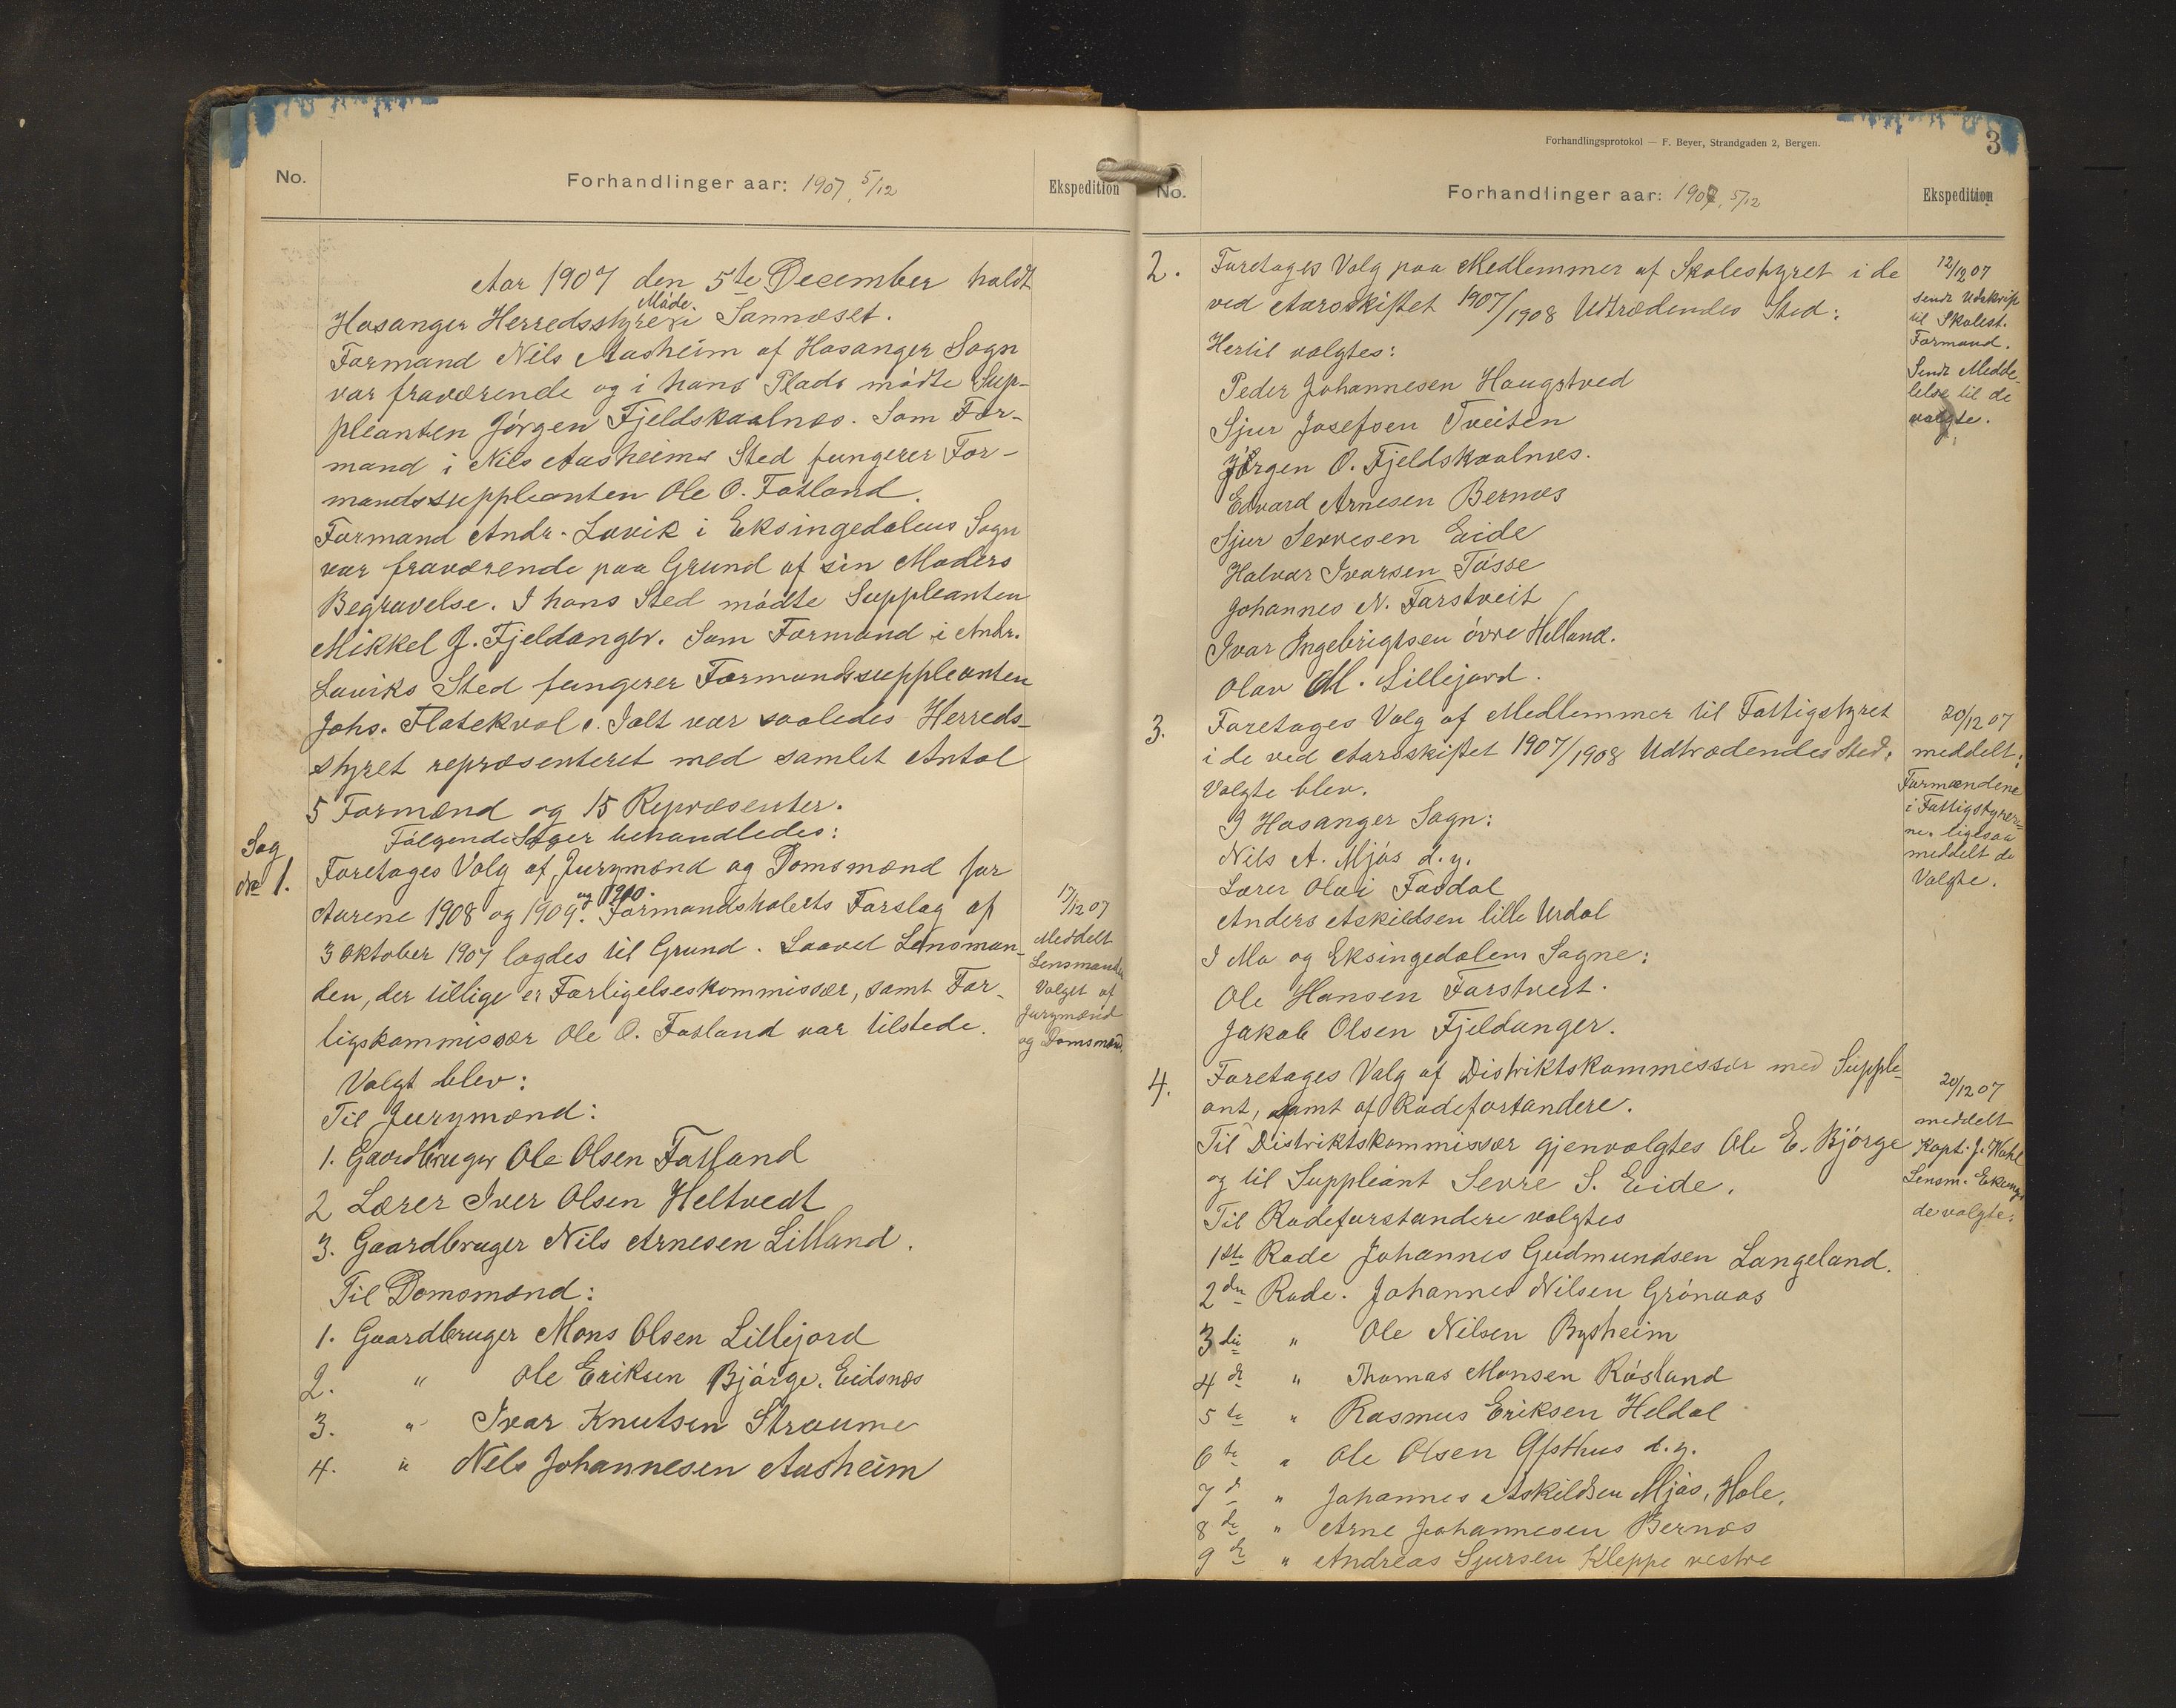 No.
Forhandlinger aar: 1907, 5/12
Ekspedition
Aar 1907 den 5te December holdt
Hosanger Herredsstyre Møde i Sannæset.
Formand Nils Aasheim af Hosanger Sogn
var fraværende og i hans Plads mødte Sup-
pleanten Jørgen Fjeldskaalnæs. Som For-
mand i Nils Aasheims Sted fungerer For-
mandssuppleanten Ole O. Fatland.
Formand Andr. Lavik i Eksingedalens Sogn
var fraværende paa Grund af sin Moders
Begravelse. I hans Sted mødte Suppleanten
Mikkel J. Fjeldanger. Som Formand i Andr.
Laviks Sted fungerer Formandssuppleanten
Johs. Flatekval. Ialt var saaledes Herreds-
styret repræsenteret med samlet Antal
5 Formænd og 15 Repræsenter.
Følgende Sager behandledes:
Sag
No 1.
Foretages Valg af Jurymænd og Domsmænd for
Aarene 1908 og 1909. og 1910. Formandskabets Forslag af
3 Oktober 1907 lagdes til Grund. Saavel Lensman-
den, der tillige er Forligelseskommissær, samt For-
ligskommissær Ole O. Fatland var tilstede.
17/12 07
Meddelt
Lensmanden
Valget af
Jurymænd
og Domsmænd.
Valgt blev:
Til Jurymænd:
1. Gaardbruger Ole Olsen Fatland
2 Lærer Iver Olsen Heltvedt
3. Gaardbruger Nils Arnesen Litland.
Til Domsmænd:
1. Gaardbruger Mons Olsen Lillejord
2. " Ole Eriksen Bjørge, Eidsnæs
3. " Ivar Knutsen Straume
4. " Nils Johannesen Aasheim
Forhandlingsprotokol — F. Beyer, Strandgaden 2, Bergen.
3
No.
Forhandlinger aar: 1907, 5/12
Ekspedition
2. Foretages Valg paa Medlemmer af Skolestyret i de
ved Aarsskiftet 1907/1908 Udtrædendes Sted:
Hertil valgtes:
Peder Johannesen Haugstved
Sjur Josefsen Tveiten
Jørgen O. Fjeldskaalnes.
Edvard Arnesen Bernæs
Sjur Sevresen Eide
Halvar Ivarsen Tøsse
Johannes N. Farstveit
Ivar Ingebrigtsen øvre Helland.
Olav M. Lillejord.
12/12 07
Sendt Udskrift
til Skolest.
Formand.
Sendt Medde-
lelse til de
valgte.
3. Foretages Valg af Medlemmer til Fattigstyret
i de ved Aarsskiftet 1907/1908 Udtrædendes Sted.
Valgte blev.
I Hosanger Sogn:
Nils A. Mjøs d.y.
Lærer Olai Fosdal
Anders Askildsen lille Urdal
I Mo og Eksingedalens Sogne:
Ole Hansen Farstveit.
Jakob Olsen Fjeldanger.
20/12 07
meddelt:
Formændene
i Fattigstyrer-
ne. ligesaa
meddelt de
Valgte.
4. Foretages Valg af Distriktskommissær med Supple-
ant, samt af Rodeforstandere.
Til Distriktskommissær gjenvalgtes Ole E. Bjørge
og til Suppleant Sevre S. Eide.
Til Rodeforstandere valgtes
1ste Rode Johannes Gudmundsen Langeland.
2den Rode. Johannes Nilsen Grønaas
3die " Ole Nilsen Bysheim
4de " Thomas Monsen Røsland
5te " Rasmus Eriksen Heldal
6te " Ole Olsen Øfsthus d.y.
7de " Johannes Askildsen Mjøs, Hole.
8de " Arne Johannesen Bernæs
9de " Andreas Sjursen Kleppe vestre
20/12 07
meddelt
Kapt. J. Wahl
Lensm.
de valgte.